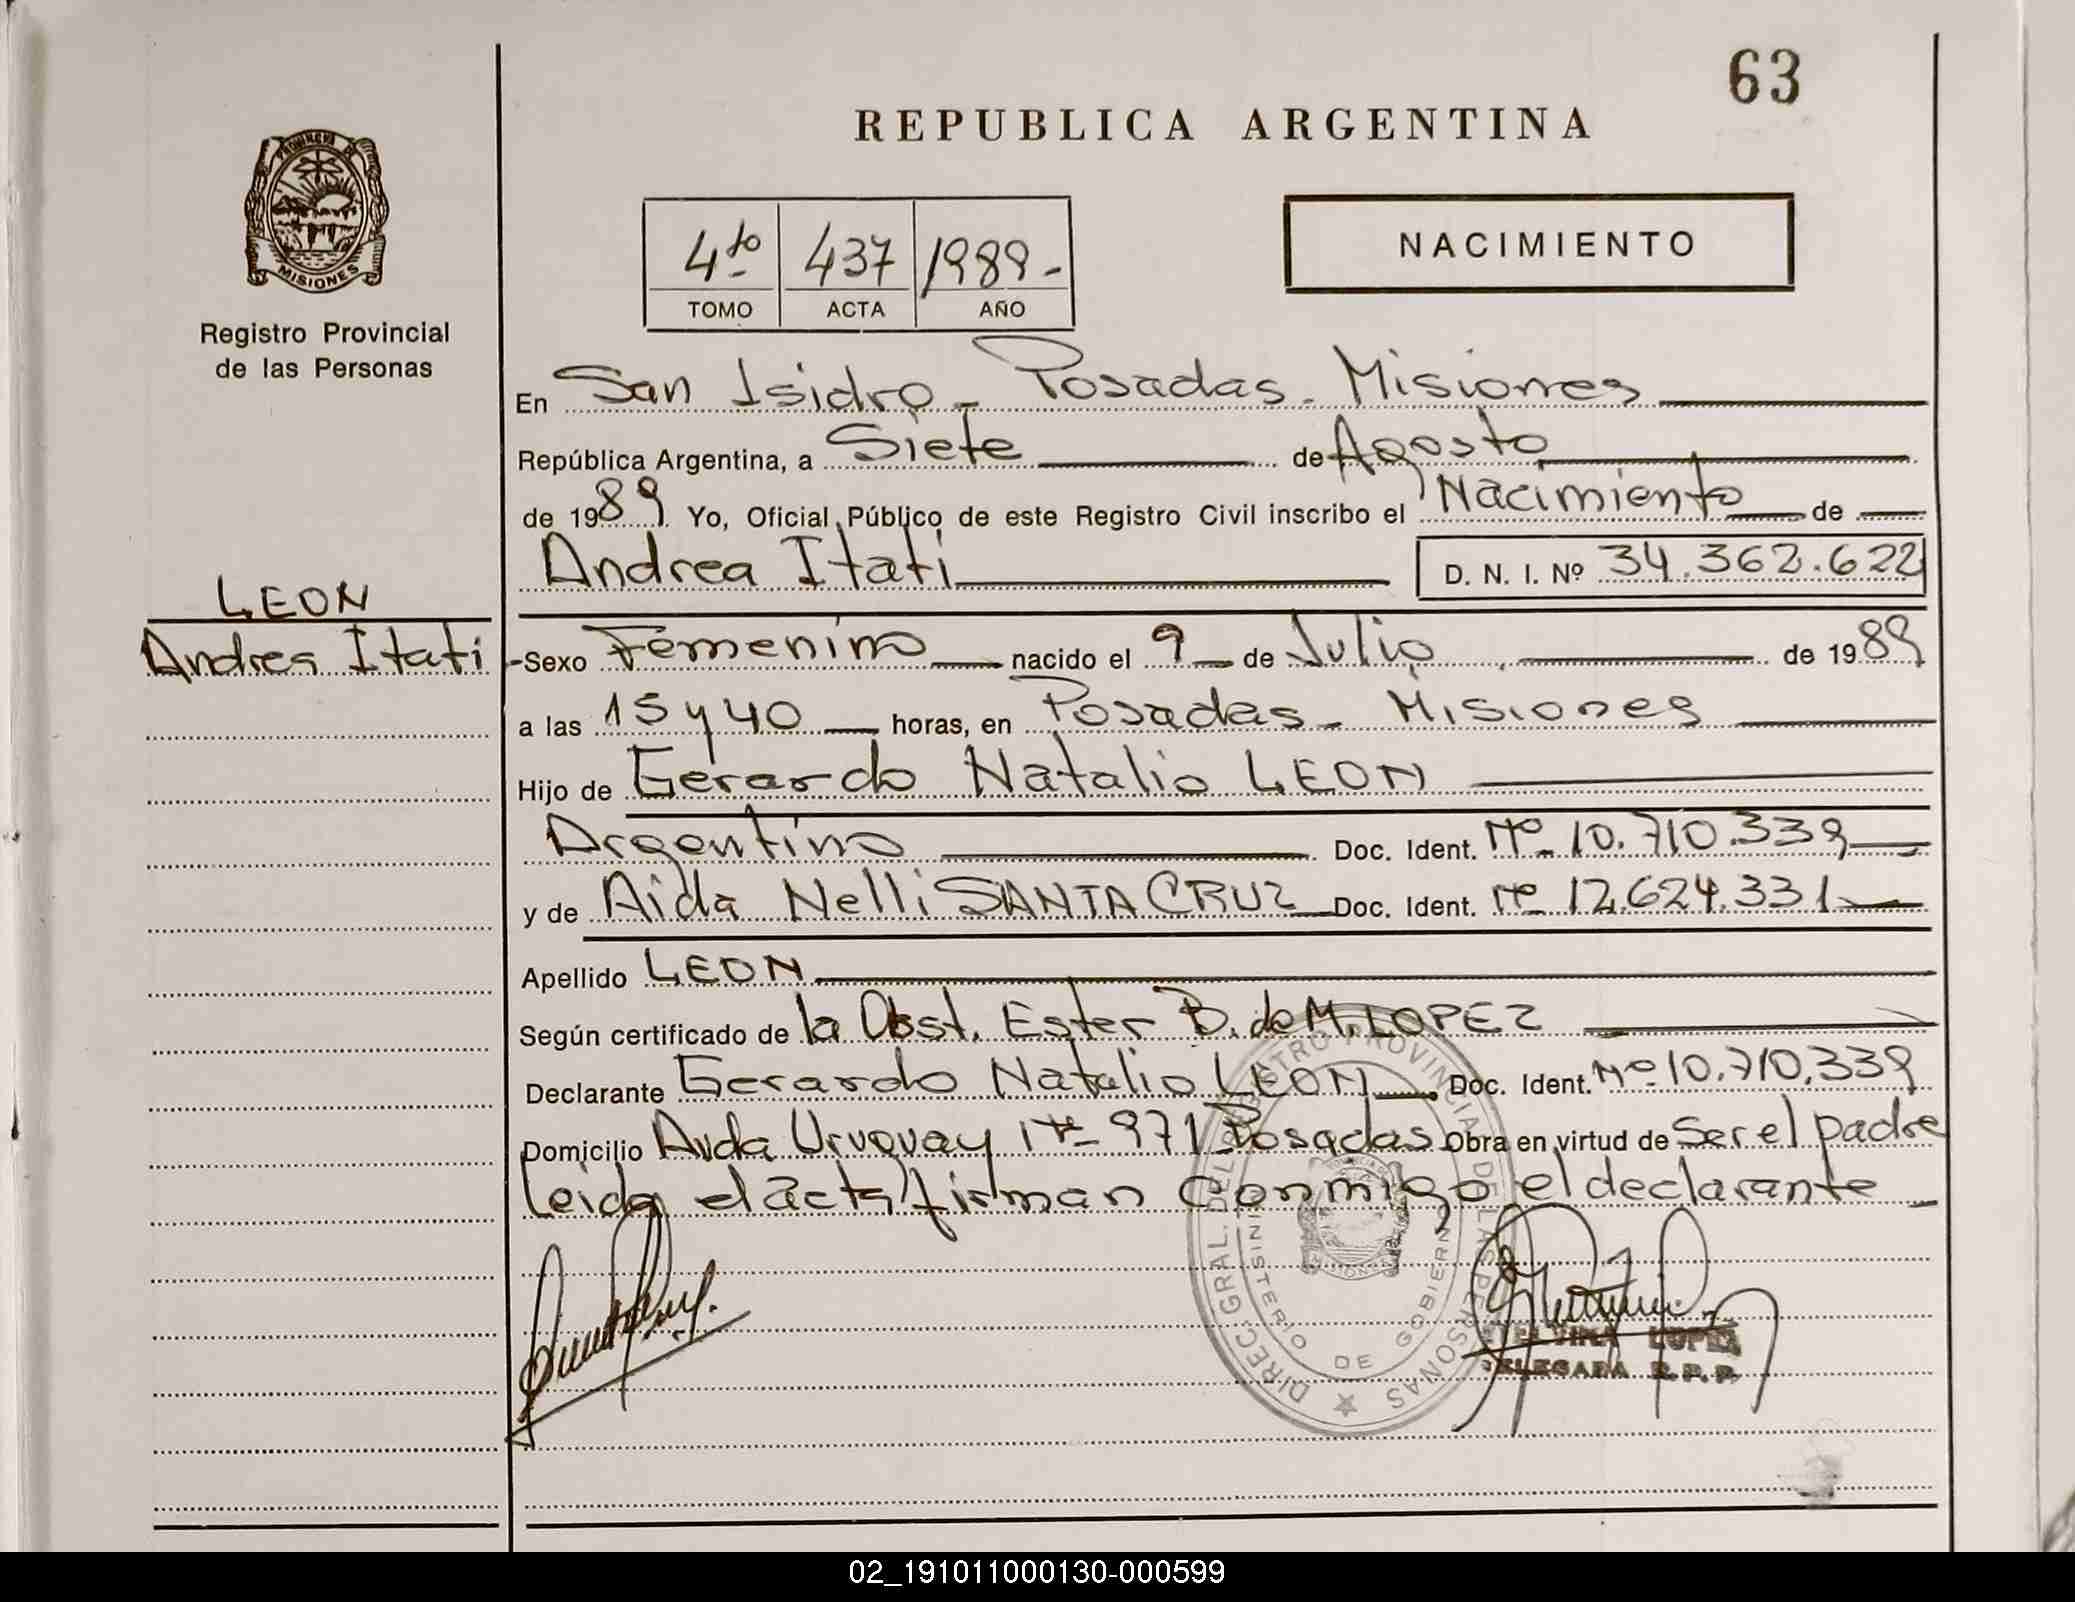 63
REPUBLICA ARGENTINA
PROVINCIA DE
MISIONES
Registro Provincial
de las Personas
4to 437 1989-
TOMO ACTA AÑO
NACIMIENTO
En San Isidro - Posadas - Misiones
República Argentina, a Siete de Agosto
de 1989. Yo, Oficial Público de este Registro Civil inscribo el Nacimiento de
Andrea Itati D. N. I. Nº 34.362.622
LEON
Andrea Itati
Sexo Femenino nacido el 9 de Julio de 1989
a las 15 y 40 horas, en Posadas - Misiones
Hijo de Gerardo Natalio LEON
Argentino Doc. Ident. Nº 10.710.339
y de Aida Nelli SANTA CRUZ Doc. Ident. Nº 12.624.331
Apellido LEON
Según certificado de la Obst. Ester B. de M. LOPEZ
Declarante Gerardo Natalio LEON Doc. Ident. Nº 10.710.339
Domicilio Avda Uruguay Nº 971 Posadas Obra en virtud de Ser el padre
leida el acta firman conmigo el declarante
DIREC. GRAL. DEL REGISTRO PROVINCIAL DE LAS PERSONAS
MINISTERIO DE GOBIERNO
LOPEZ
DELEGADA R.P.P.
02_191011000130-000599